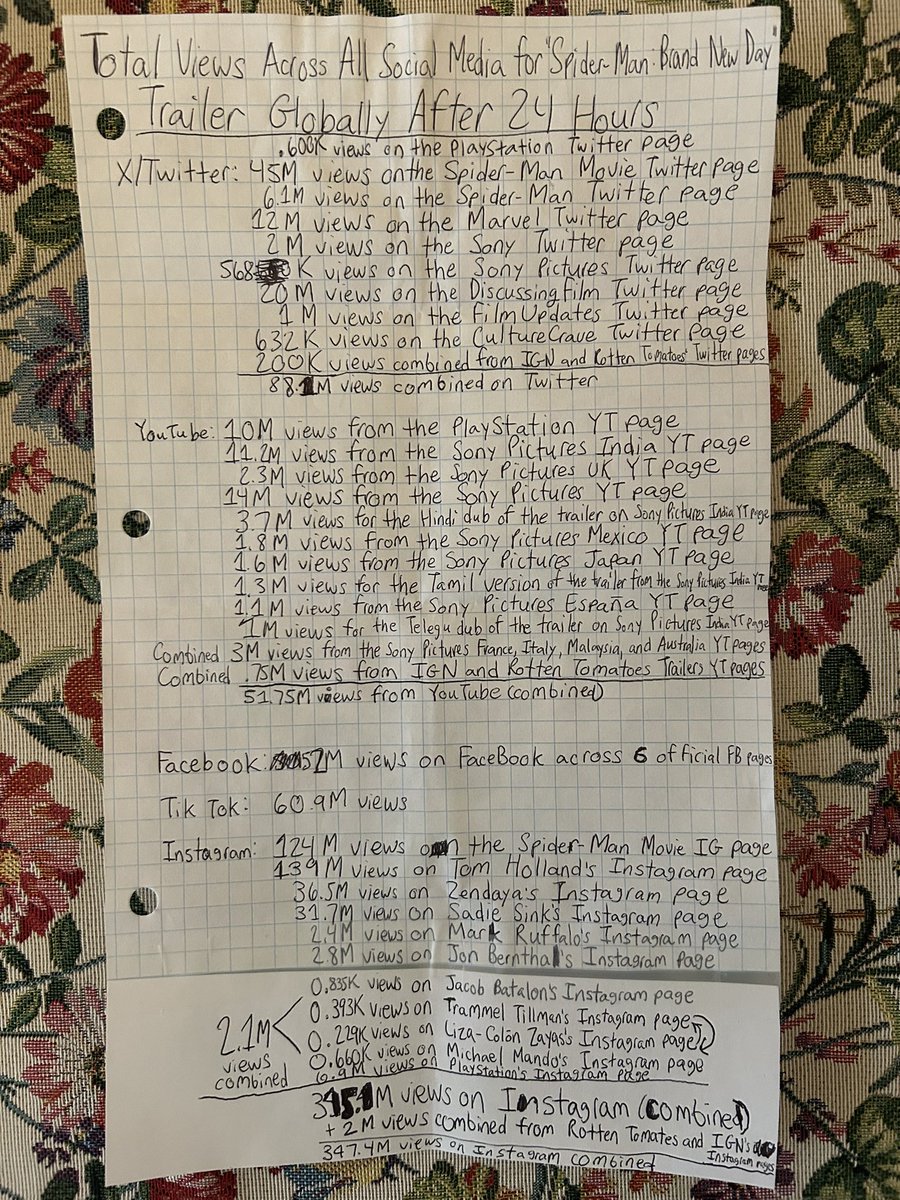 Total Views Across All Social Media for "Spider-Man: Brand New Day"
Trailer Globally After 24 Hours
.600K views on the Playstation Twitter page
X/Twitter: 45M views on the Spider-Man Movie Twitter page
6.1M views on the Spider-Man Twitter page
12M views on the Marvel Twitter page
2M views on the Sony Twitter page
568 K views on the Sony Pictures Twitter page
20M views on the DiscussingFilm Twitter page
1M views on the FilmUpdates Twitter page
632K views on the CultureCrave Twitter Page
200K views combined from IGN and Rotten Tomatoes' Twitter pages
88.1M views combined on Twitter
YouTube: 10M views from the PlayStation YT page
11.2M views from the Sony Pictures India YT page
2.3M views from the Sony Pictures UK YT page
14M views from the Sony Pictures YT page
3.7M views for the Hindi dub of the trailer on Sony Pictures India YT page
1.8M views from the Sony Pictures Mexico YT page
1.6M views from the Sony Pictures Japan YT page
1.3M views for the Tamil version of the trailer from the Sony Pictures India YT
1.1M views from the Sony Pictures España YT page
1M views for the Telegu dub of the trailer on Sony Pictures India YT page
Combined 3M views from the Sony Pictures France, Italy, Malaysia, and Australia YT pages
Combined .75M views from IGN and Rotten Tomatoes Trailers YT pages
51.75M views from YouTube (combined)
Facebook: 52M views on FaceBook across 6 official FB pages
Tik Tok: 60.9M views
Instagram: 124M views on the Spider-Man Movie IG page
139M views on Tom Holland's Instagram page
36.5M views on Zendaya's Instagram page
31.7M views on Sadie Sink's Instagram page
2.4M views on Mark Ruffalo's Instagram page
2.8M views on Jon Bernthal's Instagram page
0.835K views on Jacob Batalon's Instagram page
0.393K views on Trammel Tillman's Instagram page
0.229K views on Liza-Colón Zayas's Instagram page
0.660K views on Michael Mando's Instagram page
2.1M views combined
6.9M views on PlayStation's Instagram page
345.4M views on Instagram (combined)
+ 2M views combined from Rotten Tomates and IGN's Instagram pages
347.4M views on Instagram combined